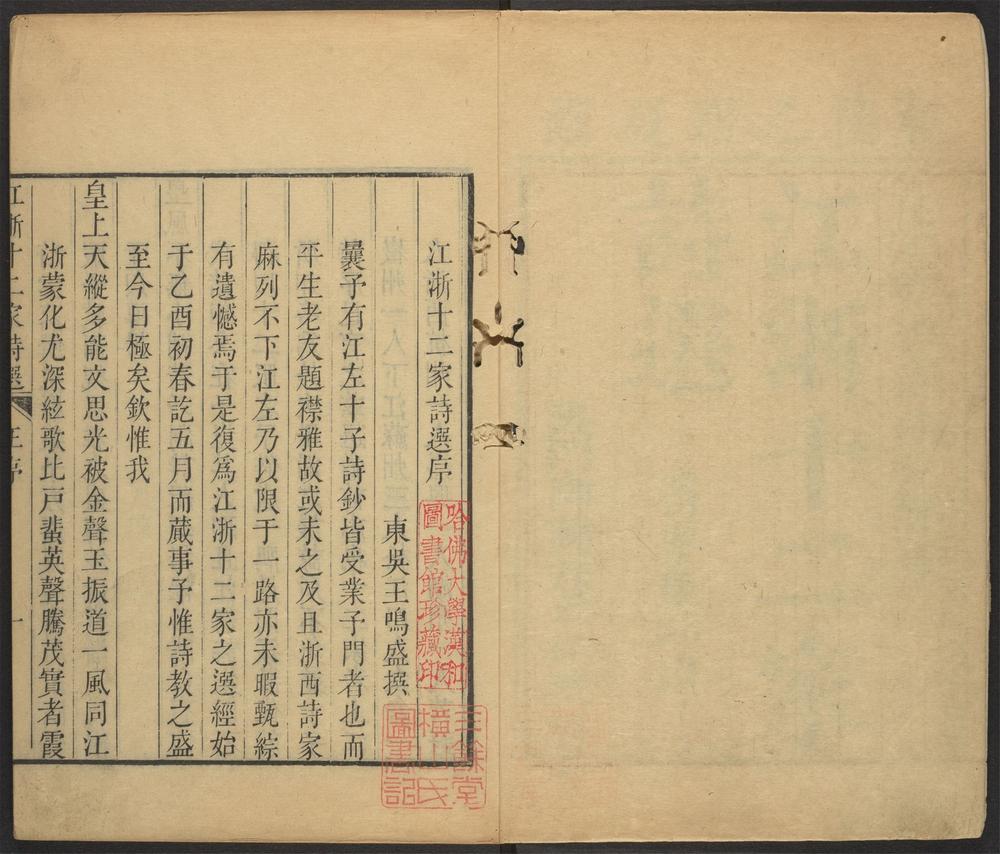 江浙十二家詩選序
東吳王鳴盛撰
曩予有江左十子詩鈔皆受業予門者也而
平生老友題襟雅故或未之及且浙西詩家
麻列不下江左乃以限于一路亦未暇甄綜
有遺憾焉于是復爲江浙十二家之選經始
于乙酉初春訖五月而蕆事予惟詩教之盛
至今日極矣欽惟我
皇上天縱多能文思光被金聲玉振道一風同江
浙蒙化尤深絃歌比戶蜚英聲騰茂實者霞
江浙十二家詩選 王序 一
哈佛大學漢和
圖書館珍藏印
三餘堂
橫山氏
圖書記